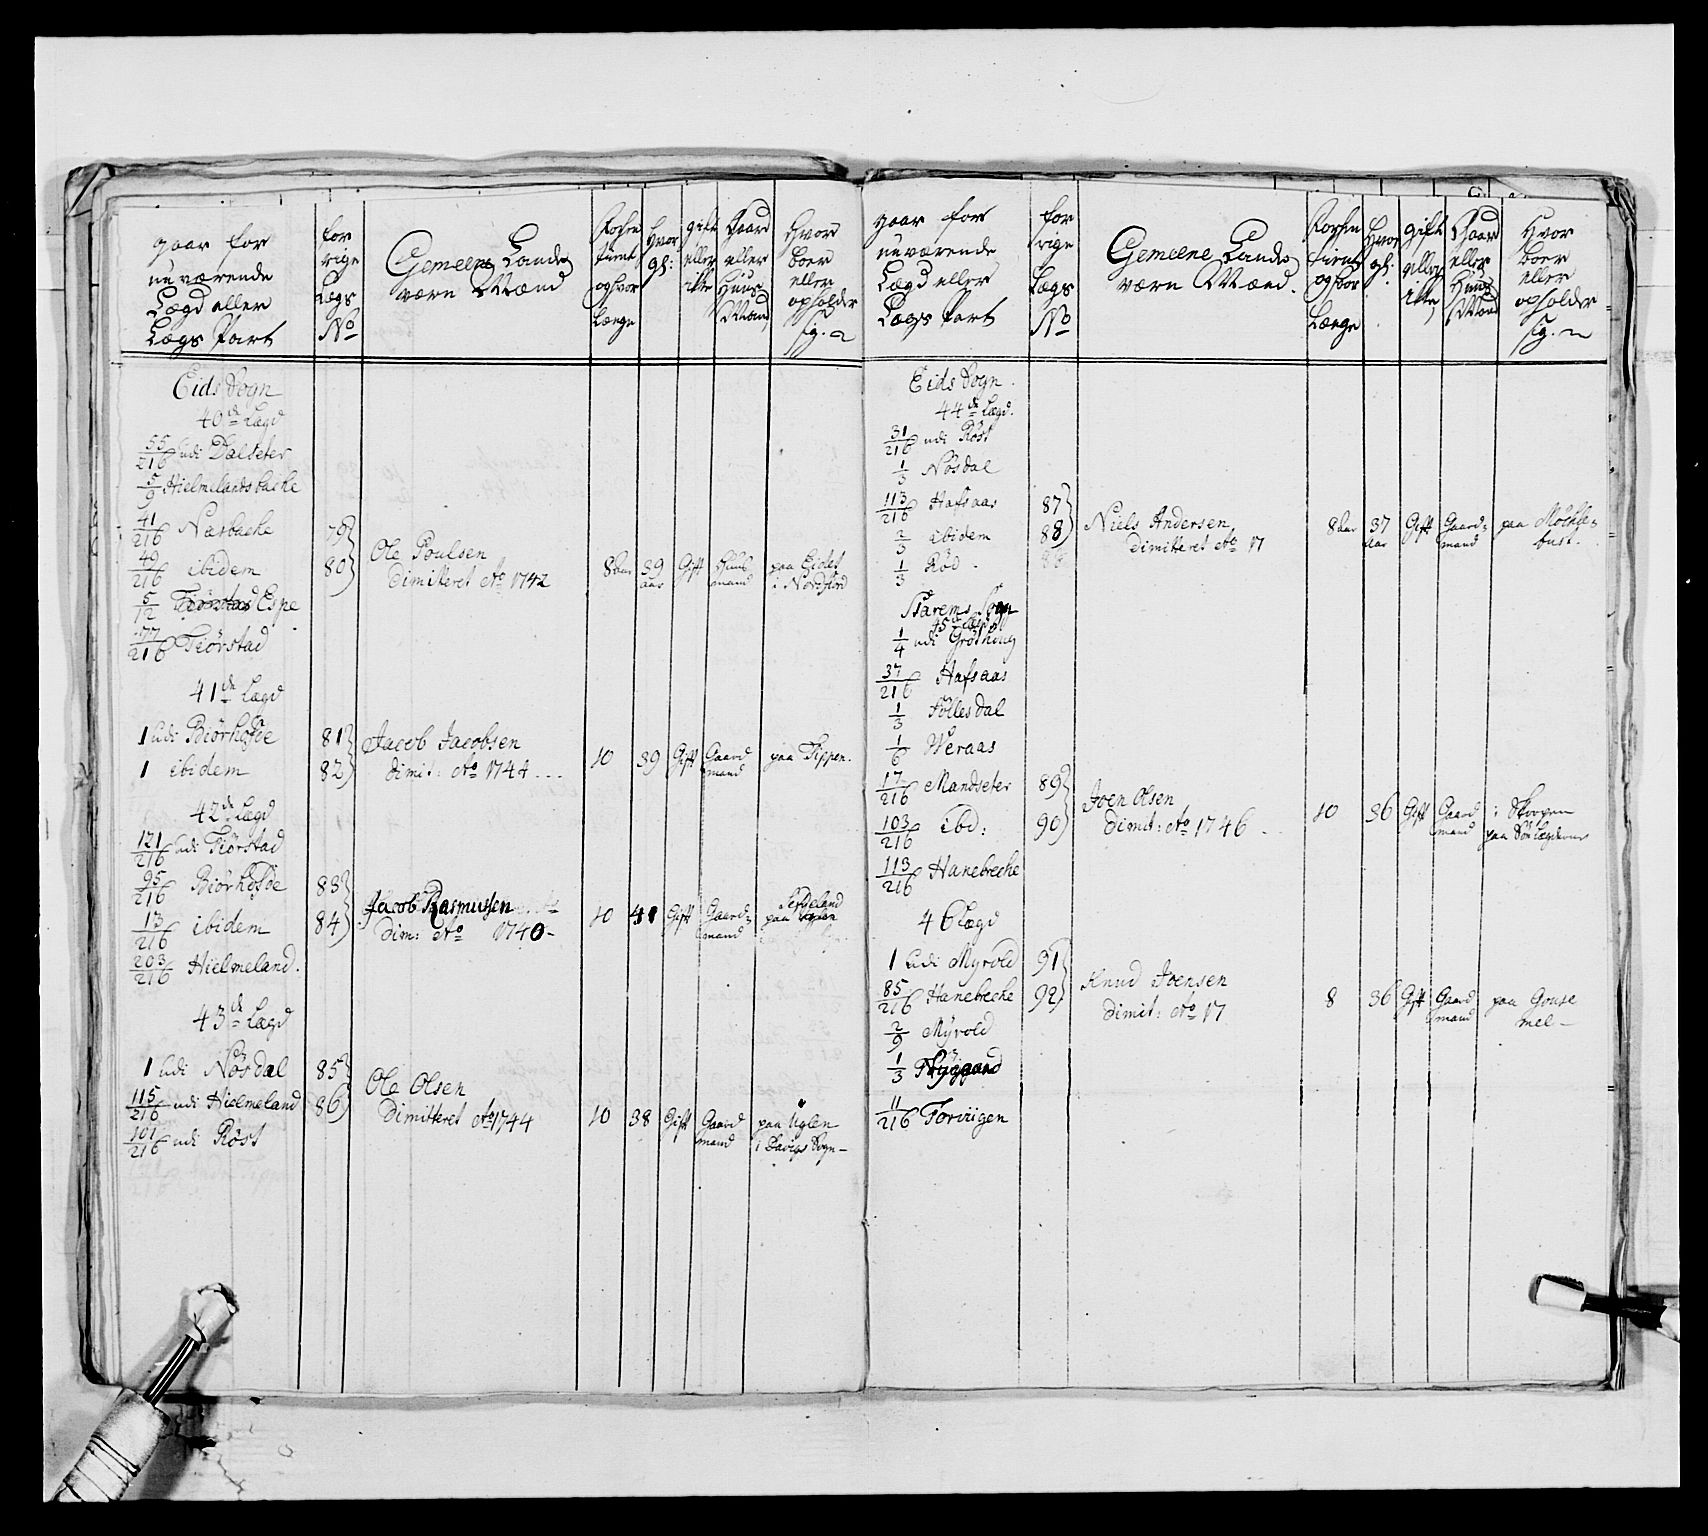 gaar for
nuværende
Lægd eller
Lægs Part
for
rige
Lægs
No
Gemeene Lands
værn Mænd
tient
og hvor
Længe
Hvor
gl:
gift
eller
ikke
Gaard
eller
Huus
Mand
Hvor
boer
eller
opholder
sig
Eids Sogn
40de Lægd
55/216 udi Dalseter
5/9 Hielmelandsbacke
41/216 Næsbacke 79
49/216 ibidem 80
Ole Poulsen
Dimitteret Ao 1742
8 aar
39 aar
Gift
Huus mand
paa Eidet
i Nordfiord
5/12 Espe
77/216 Tiørstad
41de Lægd
1 udi Biørhofde 81
1 ibidem 82
Jacob Jacobsen
dimit: Ao 1744
10
39
Gift
Gaard mand
paa Tippen.
42de Lægd
121/216 udi Tiørstad
95/216 Biørhofde 83
13/216 ibidem 84
Jacob Rasmussen
Dim: Ao 1740
10
41
Gift
Gaard mand
paa
203/216 Hielmeland.
43de Lægd
1 udi Nøsdal 85
115/216 udi Hielmeland 86
101/216 udi Røst
Ole Olsen
Dimitteret Ao 1744
10
38
Gift
Gaard mand
paa Uglen
i Davigs Sogn
gaar for
nuværende
Lægd eller
Lægs Part
for
rige
Lægs
No
Gemeene Lands
værn Mænd.
tient
og hvor
Længe
Hvor
gl:
gift
eller
ikke
Gaard
eller
Huus
Mand
Hvor
boer
eller
opholder
sig
Eids Sogn.
44de Lægd.
31/216 udi Røst
1/3 Nøsdal
113/216 Hafsaas 87
2/3 ibidem 88
1/3 Rød
Niels Andersen
Dimitteret Ao 17
8 aar
37 aar
Gift
Gaard mand
paa Mockle-
bust.
Starems Sogn
45de Lægd
1/4 udi Grøthing
37/216 Hafsaas
1/3 Follesdal
1/6 Weraas
17/216 Mandseter 89
103/216 ibd: 90
113/216 Hanebrecke
Joen Olsen
Dimit: Ao 1746
10
36
Gift
Gaard mand
i Skougen
paa
46 Lægd
1 udi Myrold 91
85/216 Hanebrecke 92
2/9 Myrold
1/3 Nygaard
11/216 Torvigen
Knud Joensen
dimit: Ao 17
8
36
Gift
Gaard mand
paa Gouse
mel